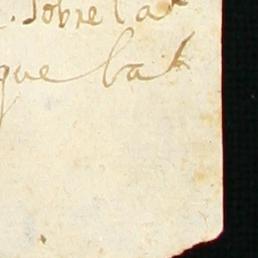 . sobre la
que ba